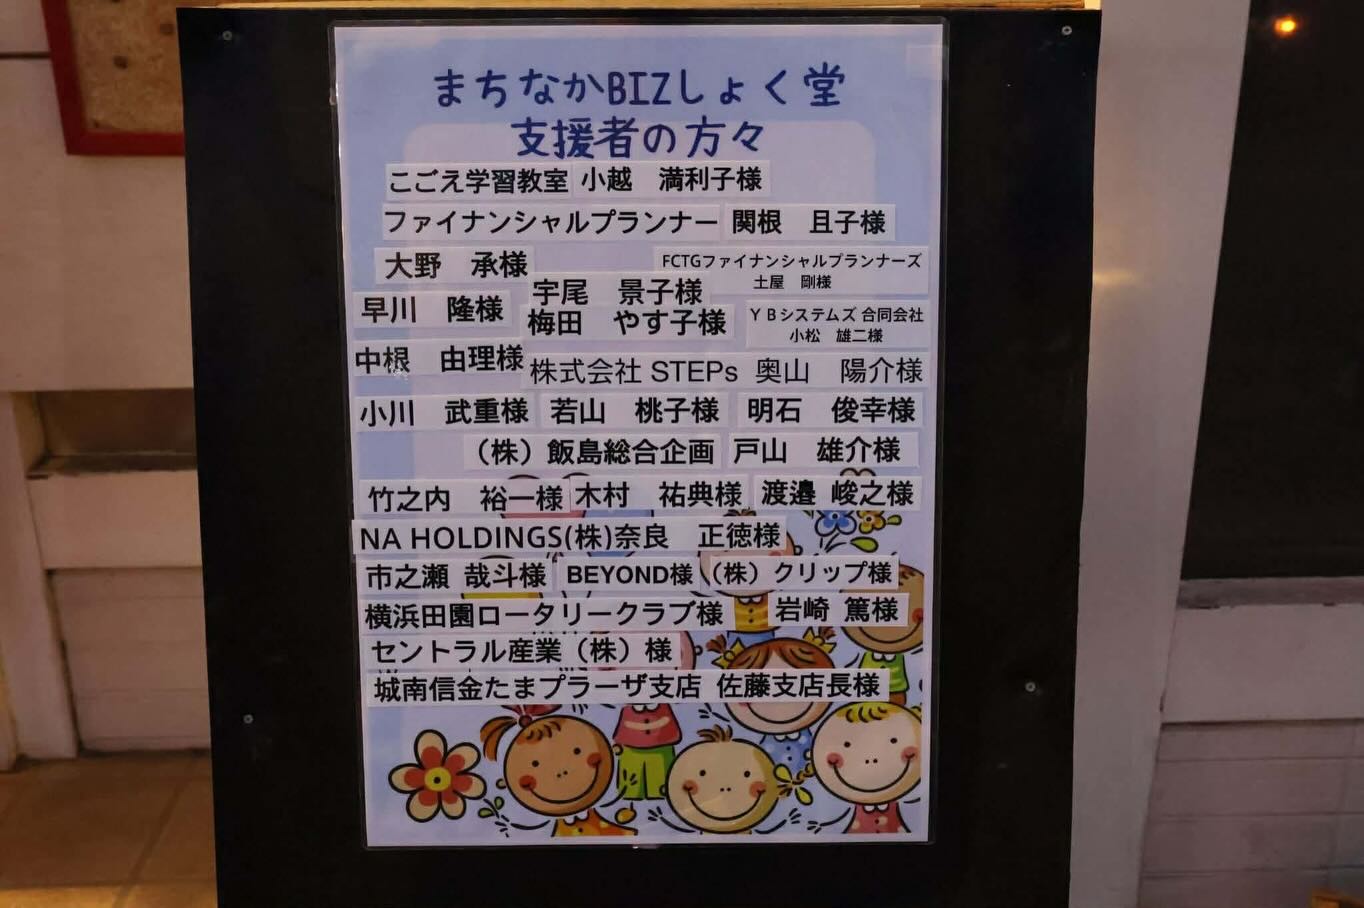 まちなかBIZしょく堂
支援者の方々
こごえ学習教室 小越 満利子様
ファイナンシャルプランナー 関根 且子様
大野 承様
FCTGファイナンシャルプランナーズ
土屋 剛様
宇尾 景子様
早川 隆様
梅田 やす子様
ＹＢシステムズ 合同会社
小松 雄二様
中根 由理様
株式会社 STEPs 奥山 陽介様
小川 武重様 若山 桃子様 明石 俊幸様
（株）飯島総合企画 戸山 雄介様
竹之内 裕一様 木村 祐典様 渡邉 峻之様
NA HOLDINGS(株)奈良 正徳様
市之瀬 哉斗様 BEYOND様 （株）クリップ様
横浜田園ロータリークラブ様 岩崎 篤様
セントラル産業（株）様
城南信金たまプラーザ支店 佐藤支店長様